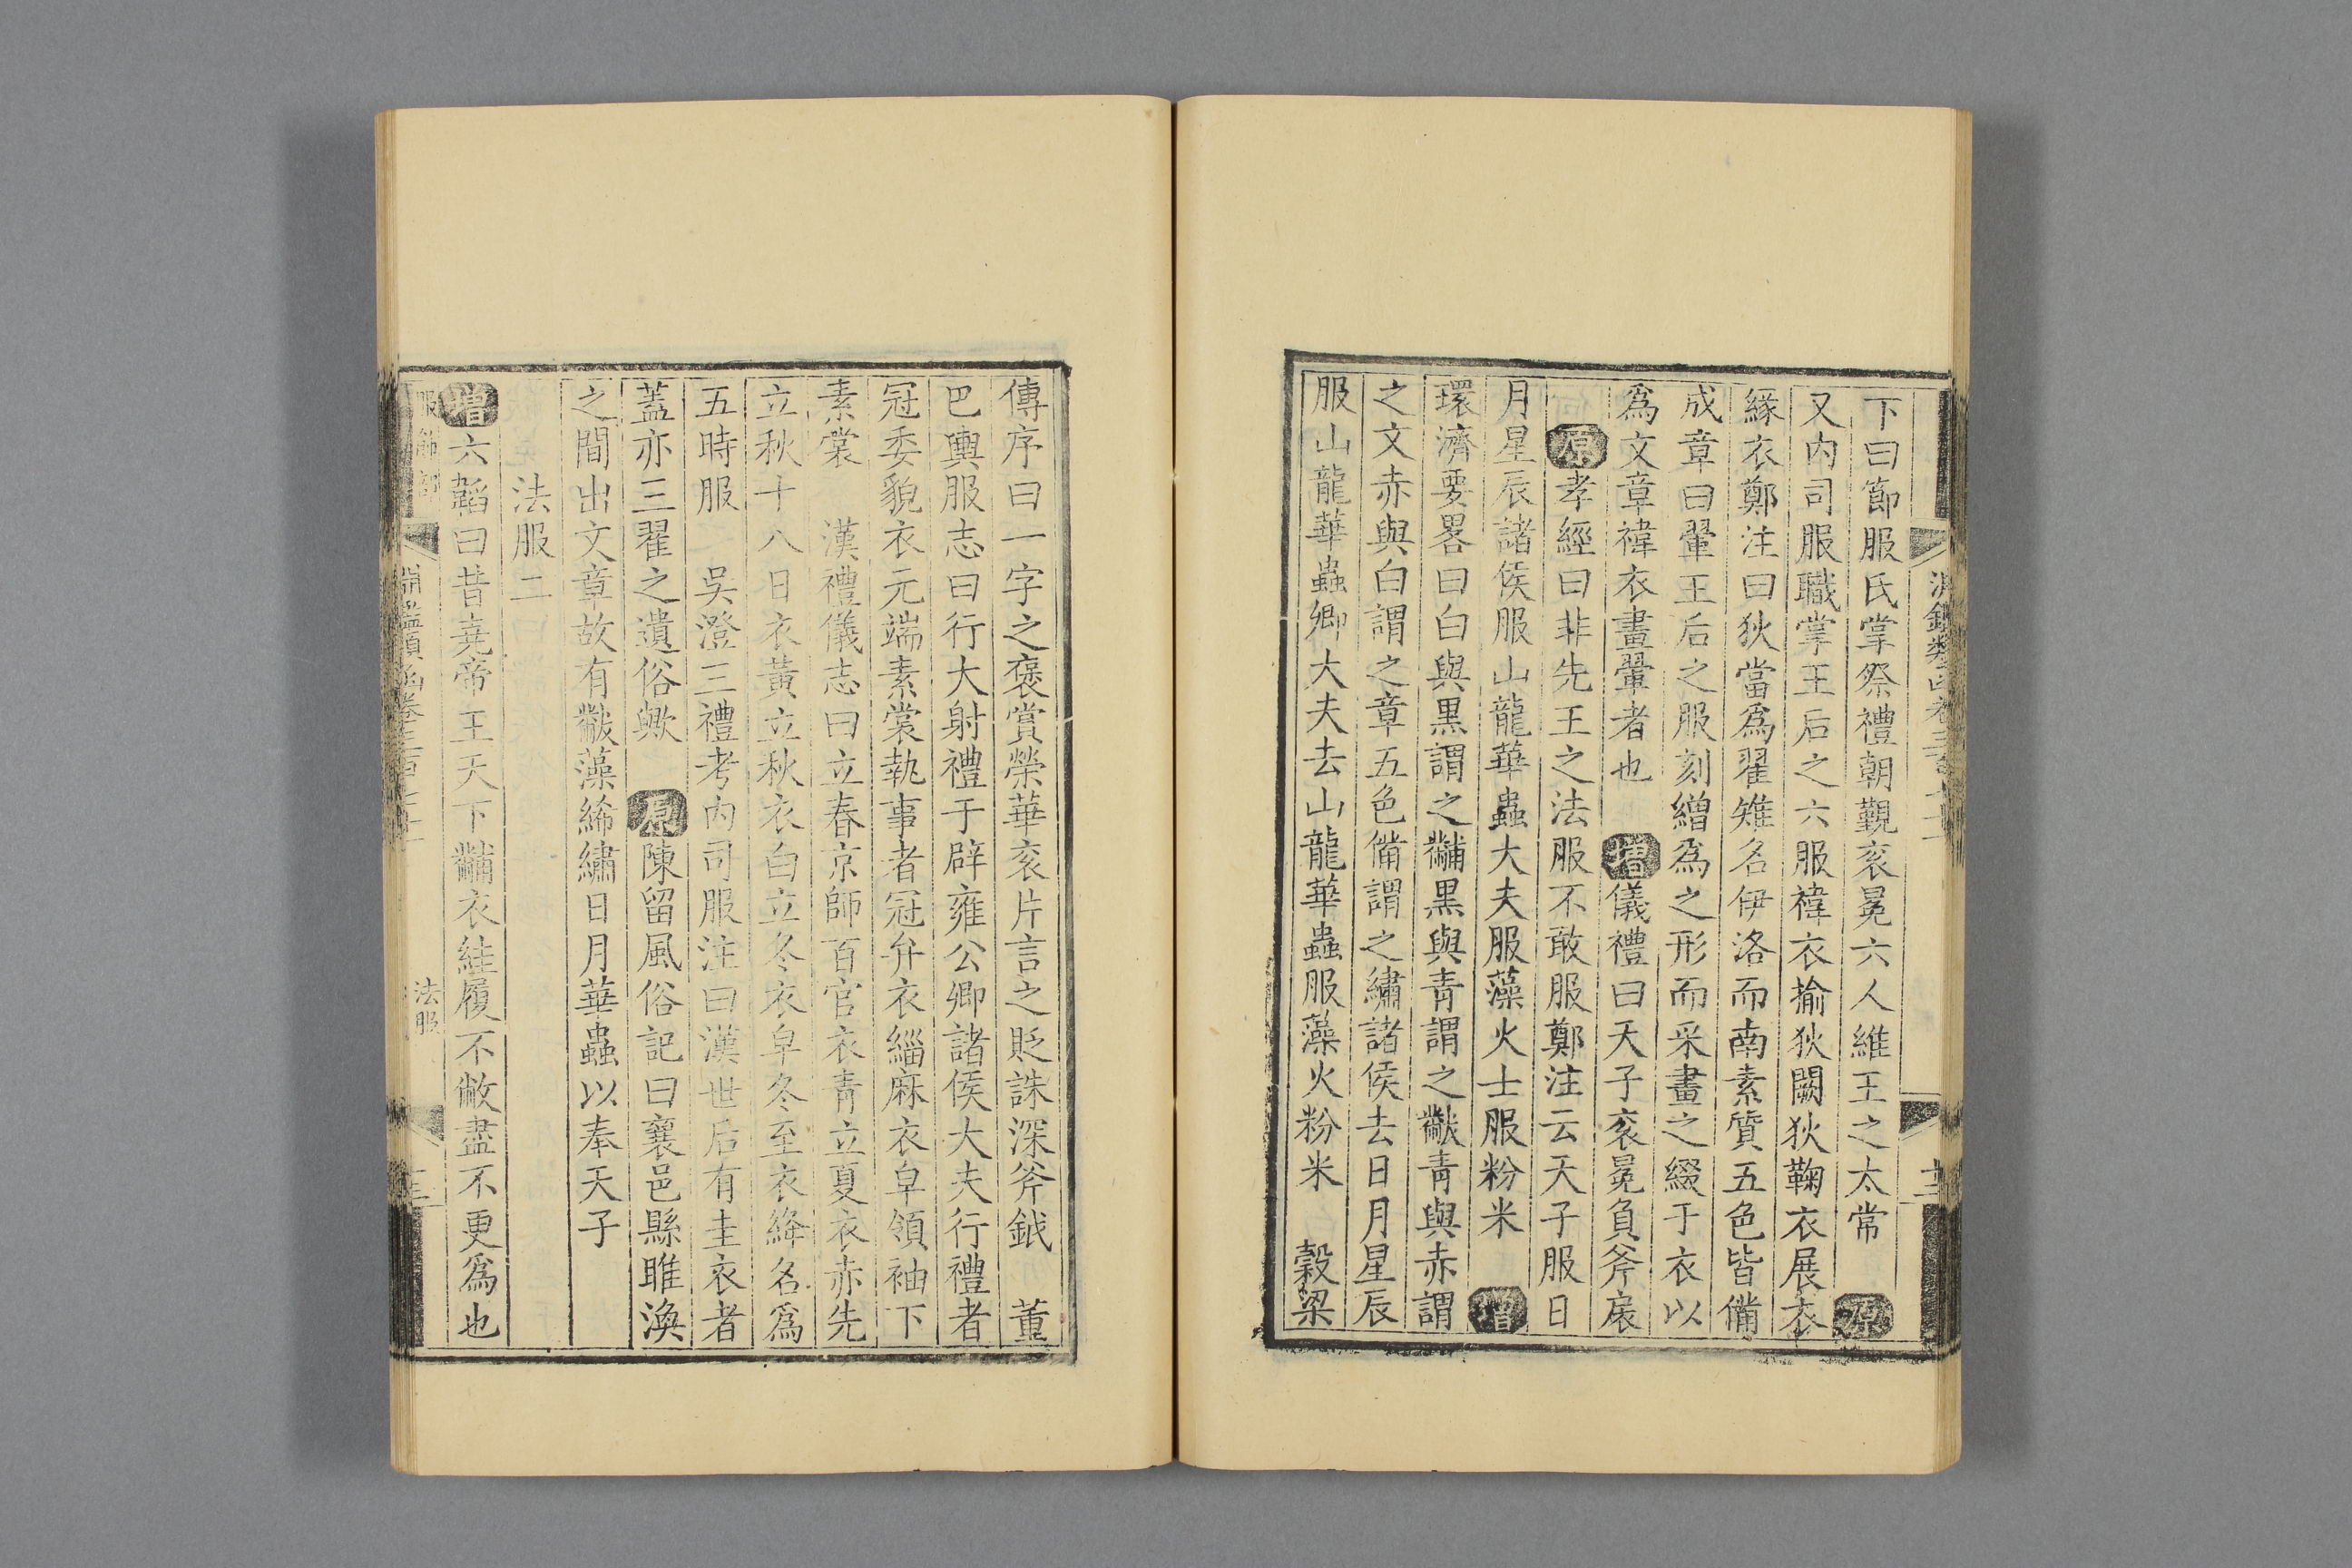 下曰節服氏掌祭禮朝覲衮冕六人維王之太常　原
又内司服職掌王后之六服褘衣揄狄闕狄鞠衣展衣
緣衣鄭注曰狄當爲翟雉名伊洛而南素質五色皆備
成章曰翬王后之服刻繒爲之形而采畫之綴于衣以
爲文章褘衣畫翬者也　增儀禮曰天子衮冕負斧扆
原孝經曰非先王之法服不敢服鄭注云天子服日
月星辰諸侯服山龍華蟲大夫服藻火士服粉米　增
環濟要畧曰白與黒謂之黼黒與青謂之黻青與赤謂
之文赤與白謂之章五色備謂之繡諸侯去日月星辰
服山龍華蟲卿大夫去山龍華蟲服藻火粉米　穀梁
傳序曰一字之褒賞榮華衮片言之貶誅深斧鉞　董
巴輿服志曰行大射禮于辟雍公卿諸侯大夫行禮者
冠委貌衣元端素裳執事者冠弁衣緇麻衣皁領袖下
素裳　漢禮儀志曰立春京師百官衣青立夏衣赤先
立秋十八日衣黃立秋衣白立冬衣皁冬至衣絳名爲
五時服　吳澄三禮考内司服注曰漢世后有圭衣者
蓋亦三翟之遺俗歟　原陳留風俗記曰襄邑縣睢渙
之間出文章故有黻藻絺繡日月華蟲以奉天子
法服二
增六韜曰昔堯帝王天下黼衣絓履不敝盡不更爲也
服飾部
法服